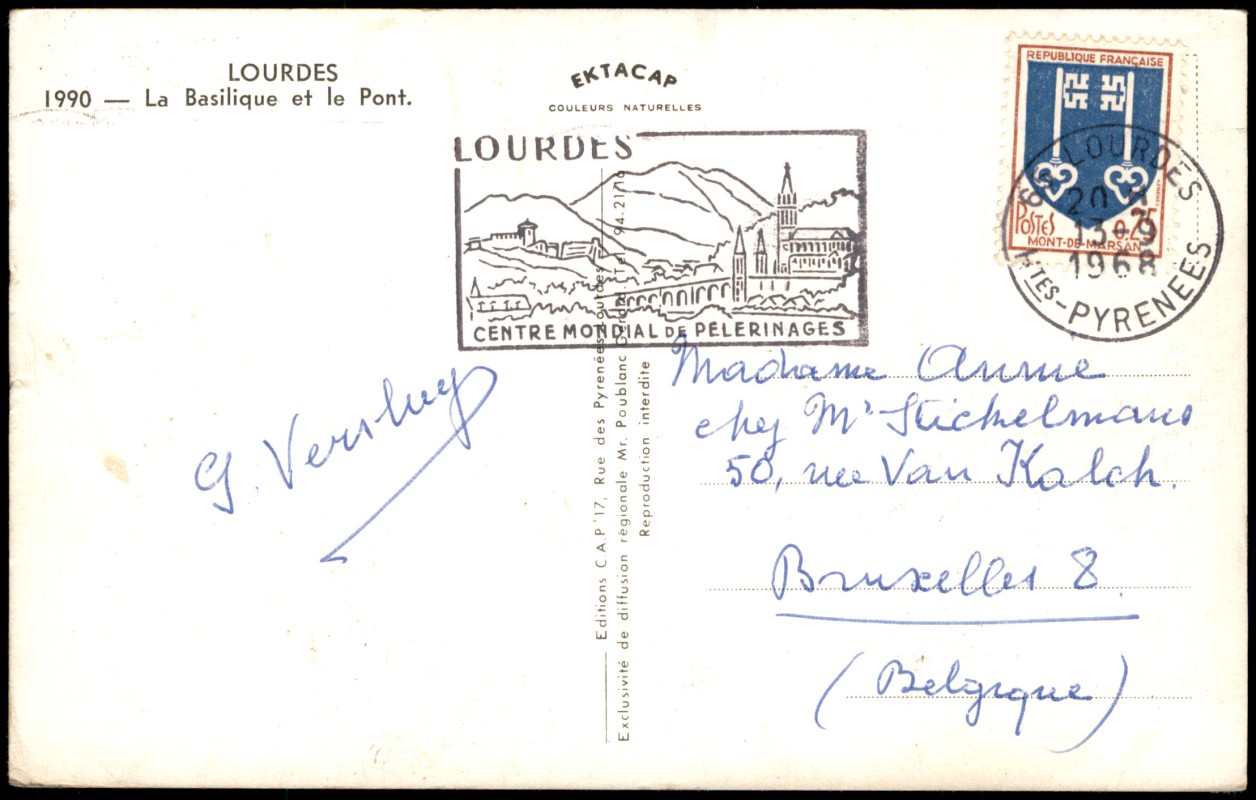 LOURDES
1990 — La Basilique et le Pont.
EKTACAP
COULEURS NATURELLES
LOURDES
CENTRE MONDIAL DE PÈLERINAGES
REPUBLIQUE FRANÇAISE
POSTES 0,25
MONT-DE-MARSAN
65 LOURDES
20 H
13-9
1968
HTES-PYRENEES
G. Versluys
Editions C.A.P 17, Rue des Pyrenées Lourdes
Exclusivité de diffusion régionale Mr. Poublanc Gerde. Tel. 94-21
Reproduction interdite
Madame Annie
chez Mr Stickelmans
50, rue Van Kalck.
Bruxelles 8.
(Belgique)